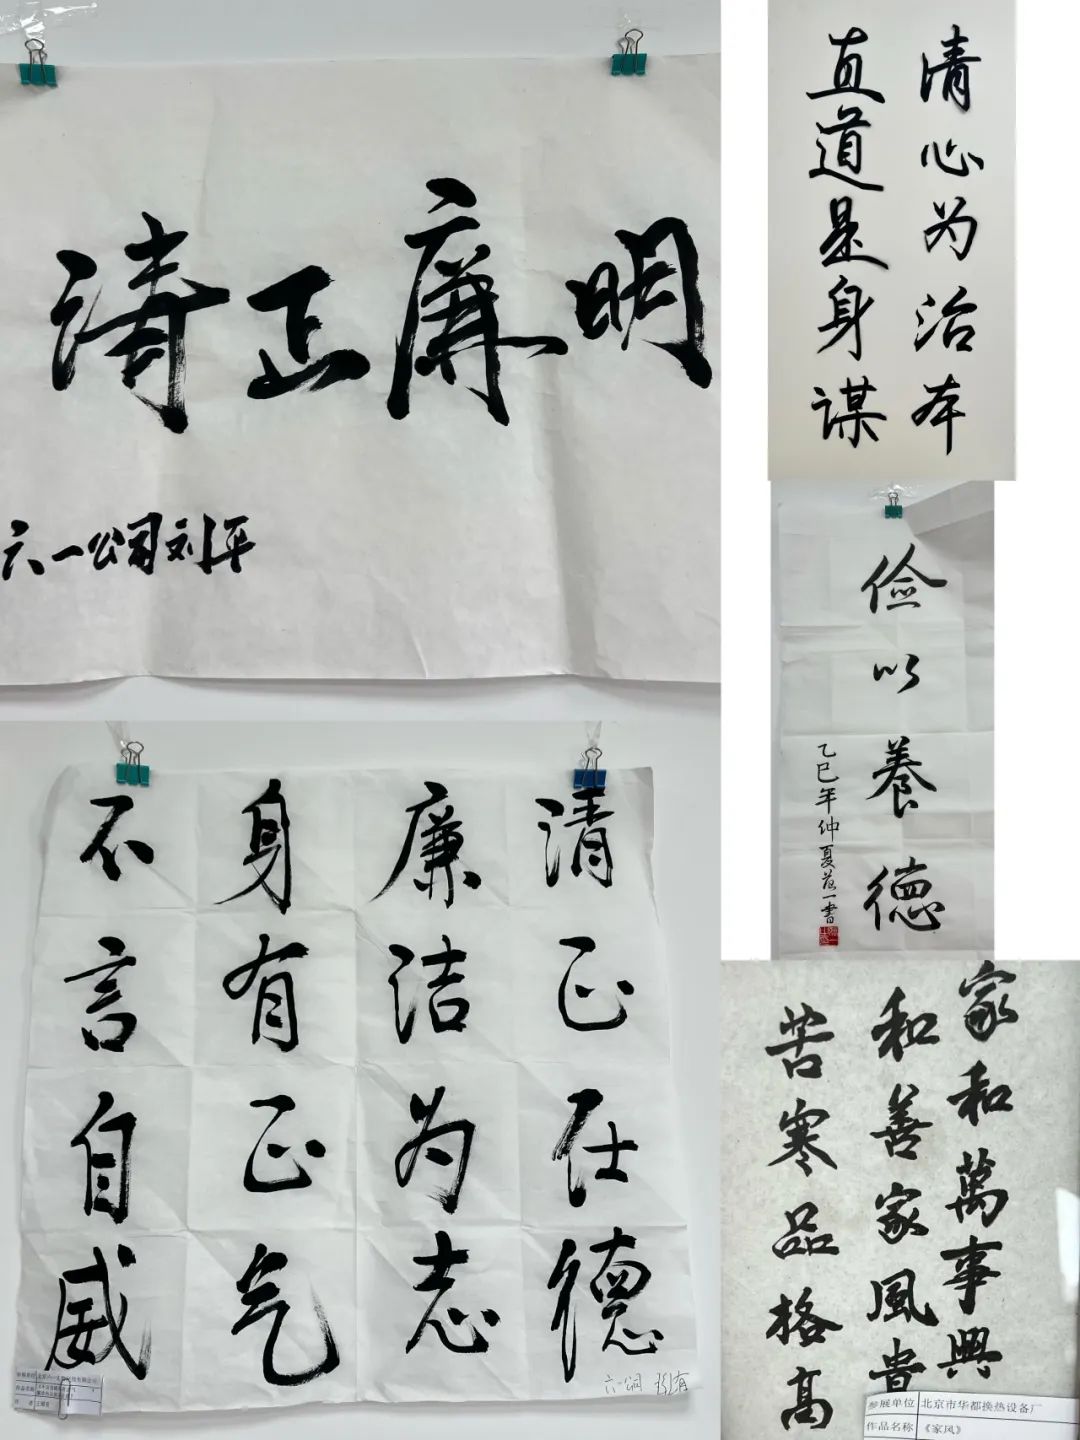 清正廉明
六一公司刘平
清心为治本
直道是身谋
俭以養德
乙巳年仲夏一書
清正在德
廉洁为志
身有正气
不言自威
六一公司
家和萬事興
和善家風貴
苦寒品格高
参展单位 北京市华都换热设备厂
作品名称 《家风》